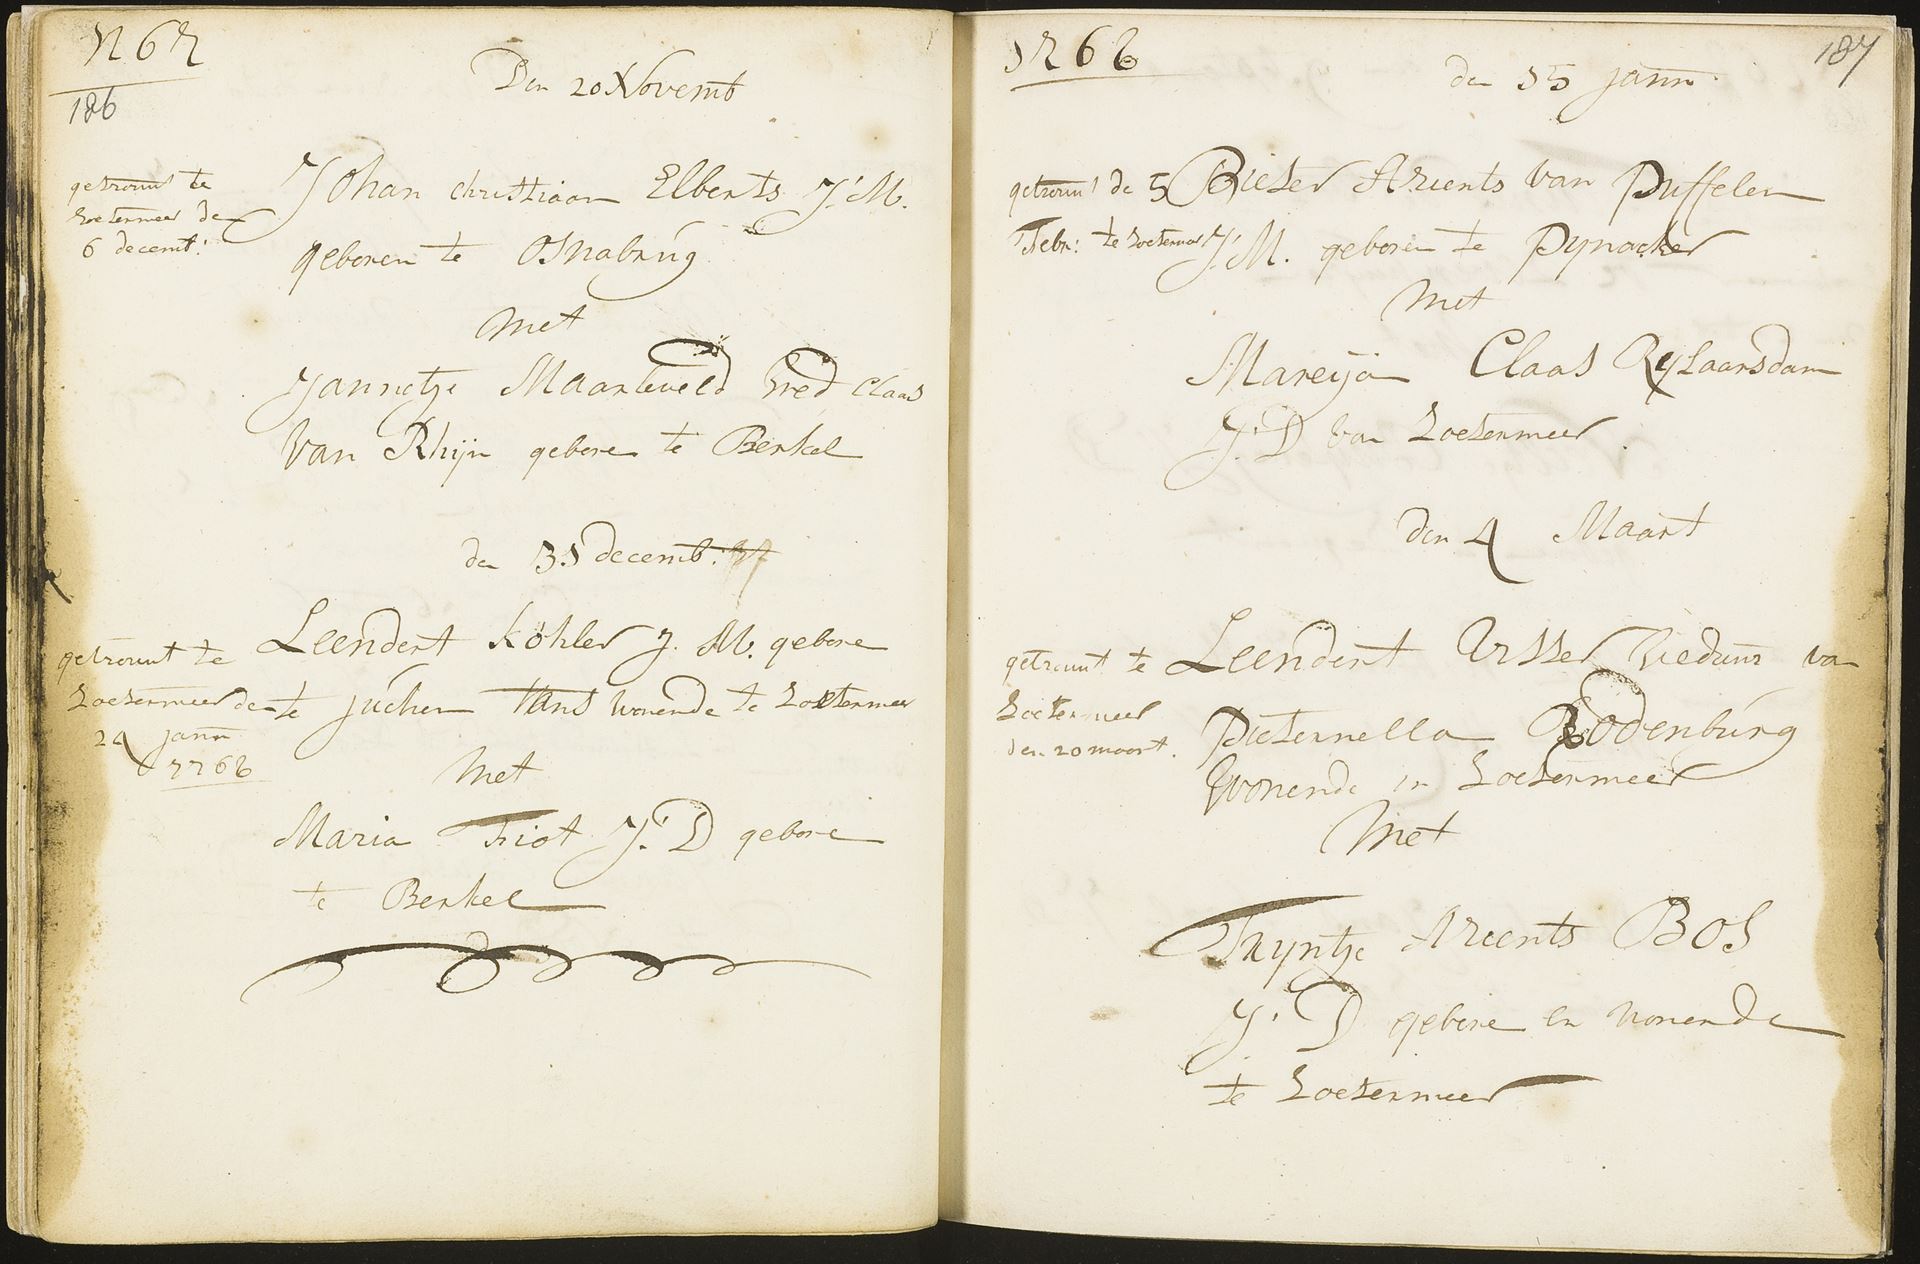 1767
186
Den 20 Novemb
getrouwt te
Zoetermeer de
6 decemt:
Johan Christiaan Elberts J:M.
geboren te Osnabrúg
Met
Jannetje Maarleveld Wed Claas
Van Rhijn gebore te Berkel
de 31 decemb:
getrouwt te
Zoetermeer de
24 jann
1768
Leendert Köhler J. M. gebore
te juchen thans wonende te Zoetermeer
Met
Maria Triot J: D gebore
te Berkel
1768
187
de 15 jann
getrouwt de 5
Febr: te Zoetermeer
Pieter Arients Van Puffelen
J:M. geboren te Pynacker
Met
Mareija Claas Rylaarsdam
J:D van Zoetermeer
den 4 Maart
getrouwt te
Zoetermeer
den 20 maart.
Leendert Visser Weduwr van
Pieternella Rodenbúrg
Wonende in Zoetermeer
Met
Tryntje Arients Bos
J: D gebore en wonende
te Zoetermeer